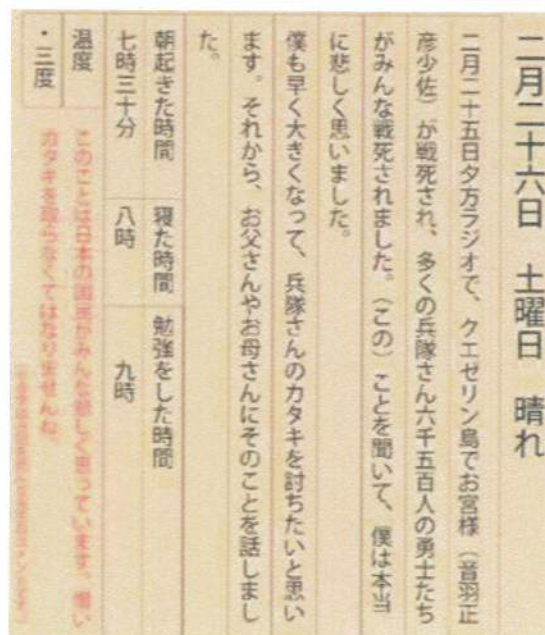 二月二十六日　土曜日　晴れ
二月二十五日夕方ラジオで、クエゼリン島でお宮様（音羽正
彦少佐）が戦死され、多くの兵隊さん六千五百人の勇士たち
がみんな戦死されました。（この）ことを聞いて、僕は本当
に悲しく思いました。
僕も早く大きくなって、兵隊さんのカタキを討ちたいと思い
ます。それから、お父さんやお母さんにそのことを話しまし
た。
朝起きた時間　寝た時間　勉強をした時間
七時三十分　八時　九時
温度
・三度
このことは日本の国民がみんな悲しく思っています。憎い
カタキを取らなくてはなりませんね。